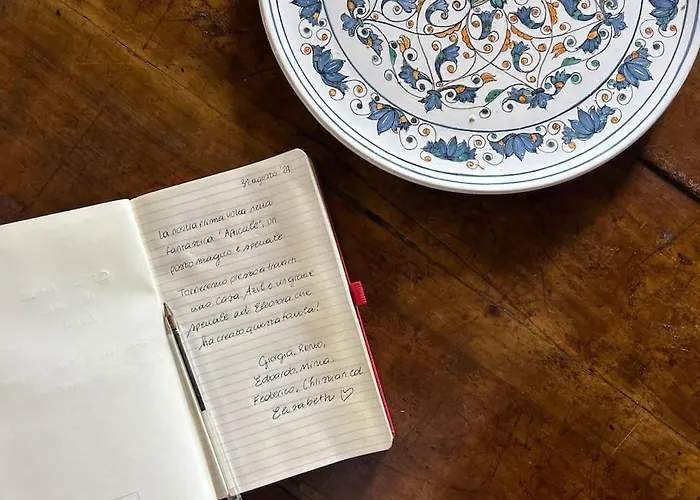 31 agosto '21
La nostra prima volta nella
fantastica "Apicale", un
posto magico e speciale.
Torneremo presto a trovarti
cara Casa Azul e un grazie
speciale ad Eleonora che
ha creato questa favola!
Giogia, Remo,
Edoardo, Mirna,
Federico, Christian ed
Elizabeth ♡